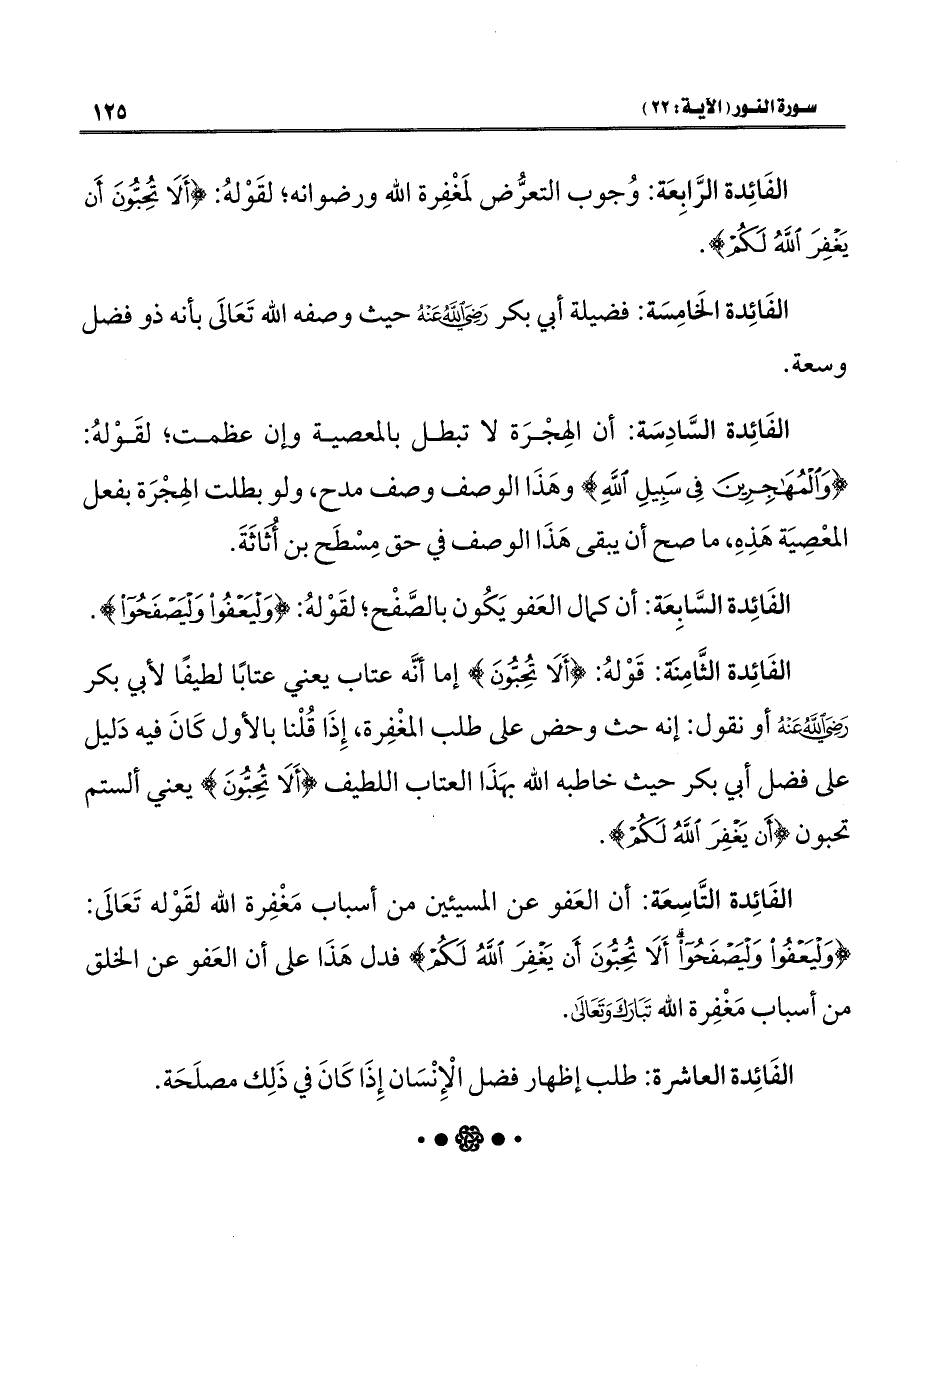 سورة النور (الآية: ٢٢)
١٢٥
الفَائِدة الرَّابِعَة: وُجوب التعرُّض لمَغْفِرة الله ورضوانه؛ لقَوْلهُ: ﴿أَلَا تُحِبُّونَ أَن
يَغْفِرَ ٱللَّهُ لَكُمْ﴾.
الفَائِدة الخَامِسَة: فضيلة أبي بكر رَضِيَ اللَّهُ عَنْهُ حيث وصفه الله تَعَالَى بأنه ذو فضل
وسعة.
الفَائِدة السَّادِسَة: أن الهِجْرَة لا تبطل بالمعصية وإن عظمت؛ لقَوْلهُ:
﴿وَٱلْمُهَٰجِرِينَ فِى سَبِيلِ ٱللَّهِ﴾ وهَذَا الوصف وصف مدح، ولو بطلت الهِجْرَة بفعل
المعْصِيَة هَذِهِ، ما صح أن يبقى هَذَا الوصف في حق مِسْطَح بن أُثَاثَةَ.
الفَائِدة السَّابِعَة: أن كمال العَفو يَكُون بالصَّفْح؛ لقَوْلهُ: ﴿وَلْيَعْفُوا۟ وَلْيَصْفَحُوٓا۟﴾.
الفَائِدة الثَّامِنَة: قَوْلهُ: ﴿أَلَا تُحِبُّونَ﴾ إما أنَّه عتاب يعني عتابًا لطيفًا لأبي بكر
رَضِيَ اللَّهُ عَنْهُ أو نقول: إنه حث وحض على طلب المغْفِرة، إِذَا قُلْنا بالأول كَانَ فيه دَليل
على فضل أبي بكر حيث خاطبه الله بهَذَا العتاب اللطيف ﴿أَلَا تُحِبُّونَ﴾ يعني ألستم
تحبون ﴿أَن يَغْفِرَ ٱللَّهُ لَكُمْ﴾.
الفَائِدة التَّاسِعَة: أن العَفو عن المسيئين من أسباب مَغْفِرة الله لقَوْله تَعَالَى:
﴿وَلْيَعْفُوا۟ وَلْيَصْفَحُوٓا۟ ۗ أَلَا تُحِبُّونَ أَن يَغْفِرَ ٱللَّهُ لَكُمْ﴾ فدل هَذَا على أن العَفو عن الخلق
من أسباب مَغْفِرة الله تَبَارَكَ وَتَعَالَى.
الفَائِدة العاشرة: طلب إظهار فضل الْإِنْسَان إِذَا كَانَ في ذَلِك مصلَحَة.